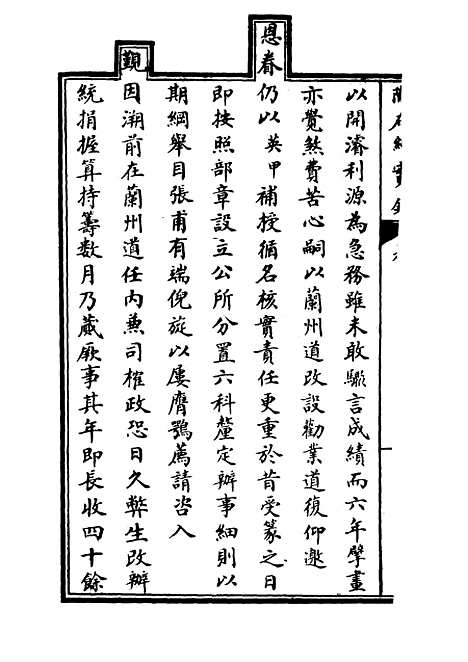 以開濬利源為急務雖未敢驟言成績而六年擘畫
亦覺煞費苦心嗣以蘭州道改設勸業道復仰邀
恩眷仍以英甲補授循名核實責任更重於昔受篆之日
即按照部章設立公所分置六科釐定辦事細則以
期綱舉目張甫有端倪旋以屢膺鶚薦請咨入
覲因溯前在蘭州道任內兼司榷政恐日久弊生改辦
統捐握算持籌數月乃蕆厥事其年即長收四十餘